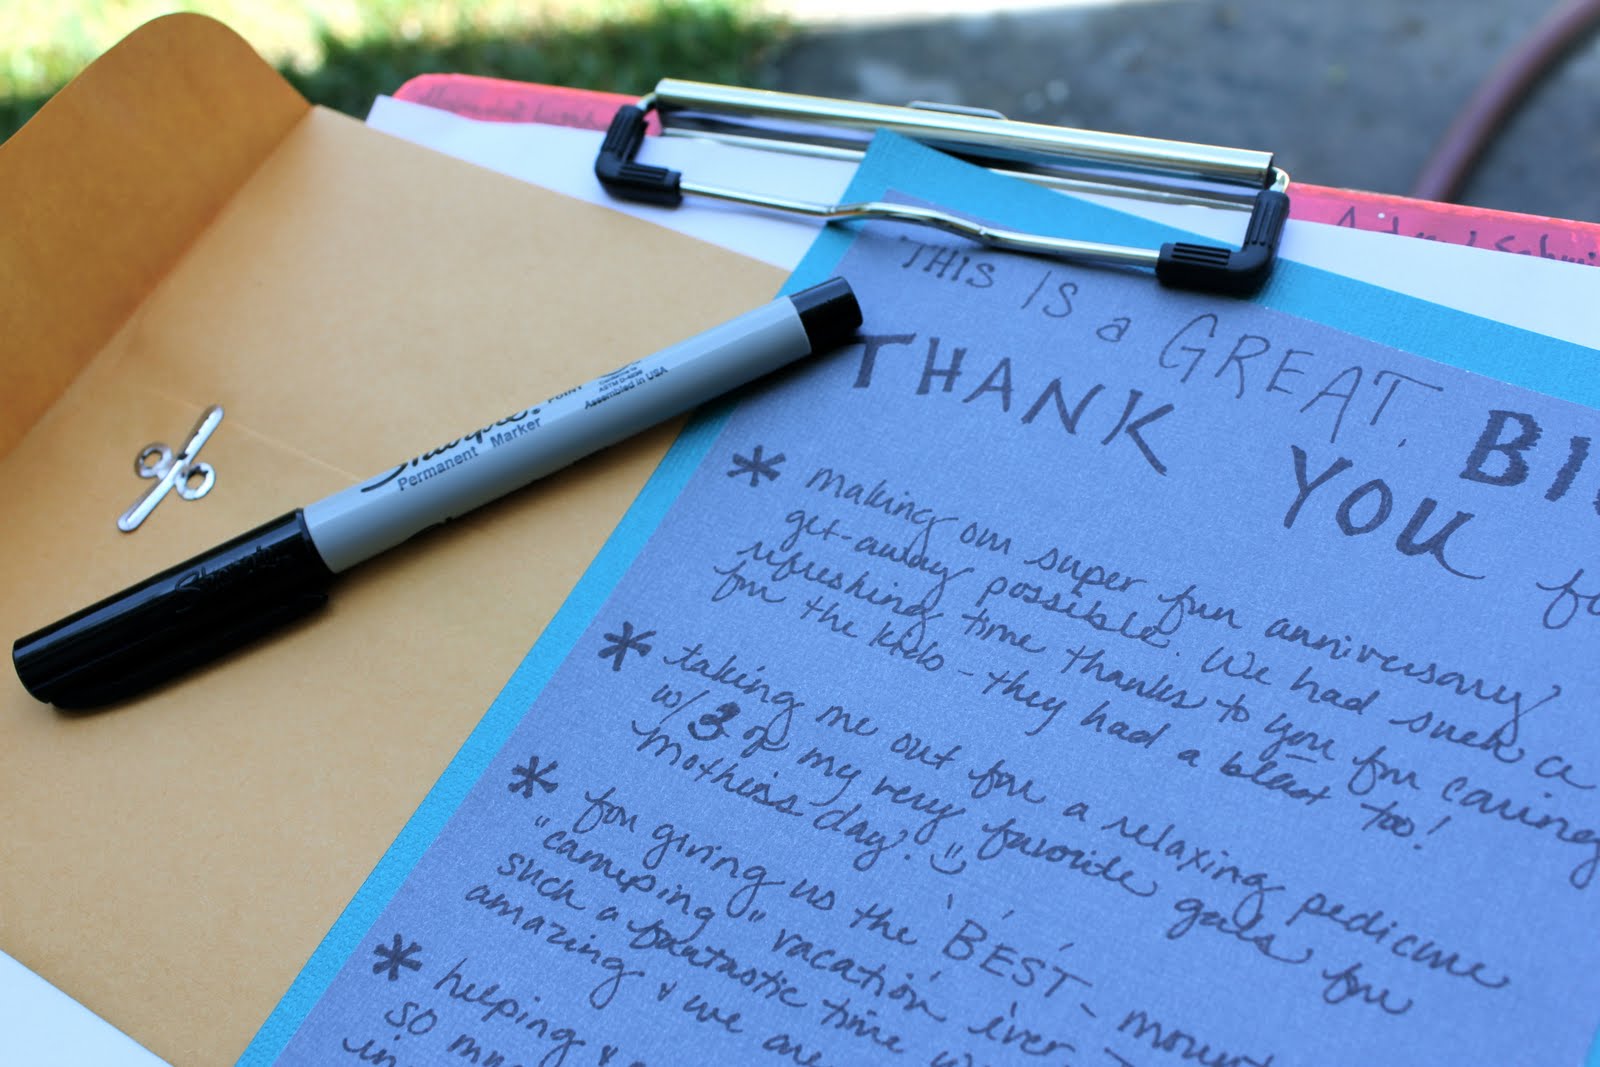 Sharpie.
Permanent Marker
POINT
ASTM D-4236
Assembled in USA
Sharpie
THIS IS a GREAT.
BI
THANK YOU fo
* making our super fun anniversary
get-away possible. We had such a
refreshing time thanks to you for caring
for the kids - they had a blast too!
* taking me out for a relaxing pedicure
w/ 3 of my very favorite gals for
Mother's day! ☺
* for giving us the 'BEST' -
"camping" vacation ever -
such a fantastic time w
amazing & we are
* helping &
so mu
in